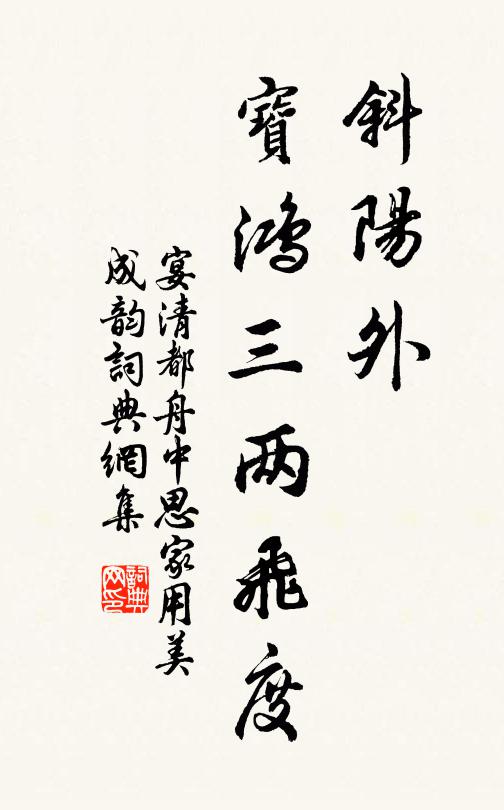 斜陽外
寶鴻三两飛度
宴清都舟中思家用美
成韵詞典網集
詞典
网印